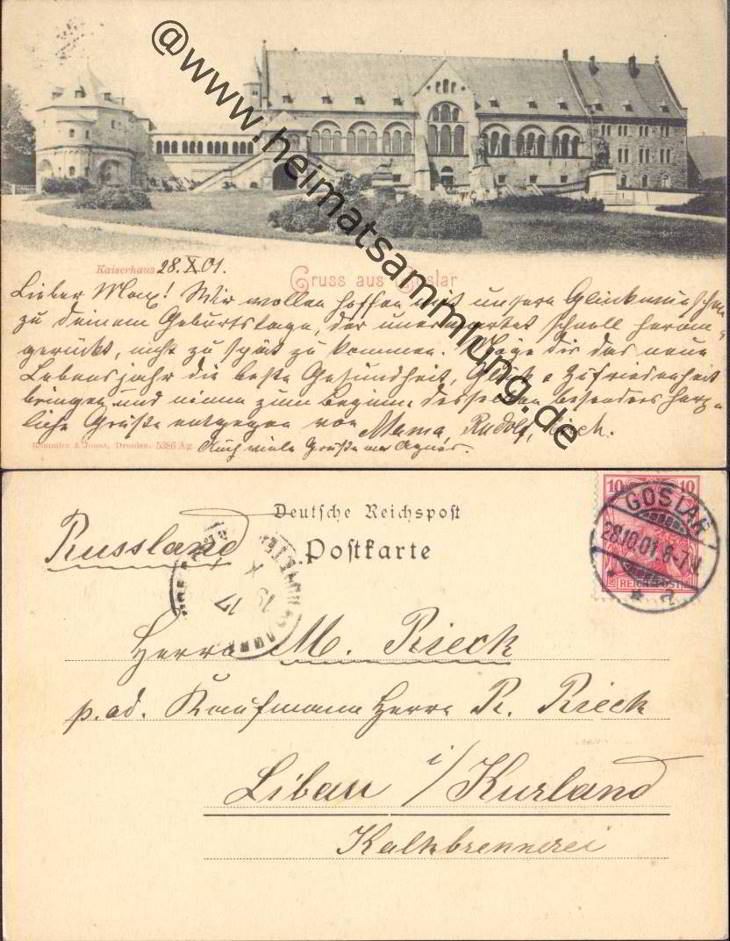 @www.heimatsammlung.de
Kaiserhaus 28.X.01.
Gruss aus Goslar
Lieber Max! Wir wollen hoffen mit unsern Glückwünschen
zu deinem Geburtstage, der unerwartet schnell heran-
gerückt, nicht zu spät zu kommen. Möge dir das neue
Lebensjahr die beste Gesundheit, Glück & Zufriedenheit
bringen und nimm zum Beginn desselben besonders herz-
liche Grüße entgegen von Mama, Rudolf,
Auch viele Grüße von Agnes.
Dresden. 5386 Ag
Deutsche Reichspost
Postkarte
Russland
10 10
GOSLAR
28.10.01. 6-7 N.
REICHSPOST
Herrn M. Rieck
p. ad. Kaufmann Herrn R. Rieck
Libau i/Kurland
Kalkbrennerei